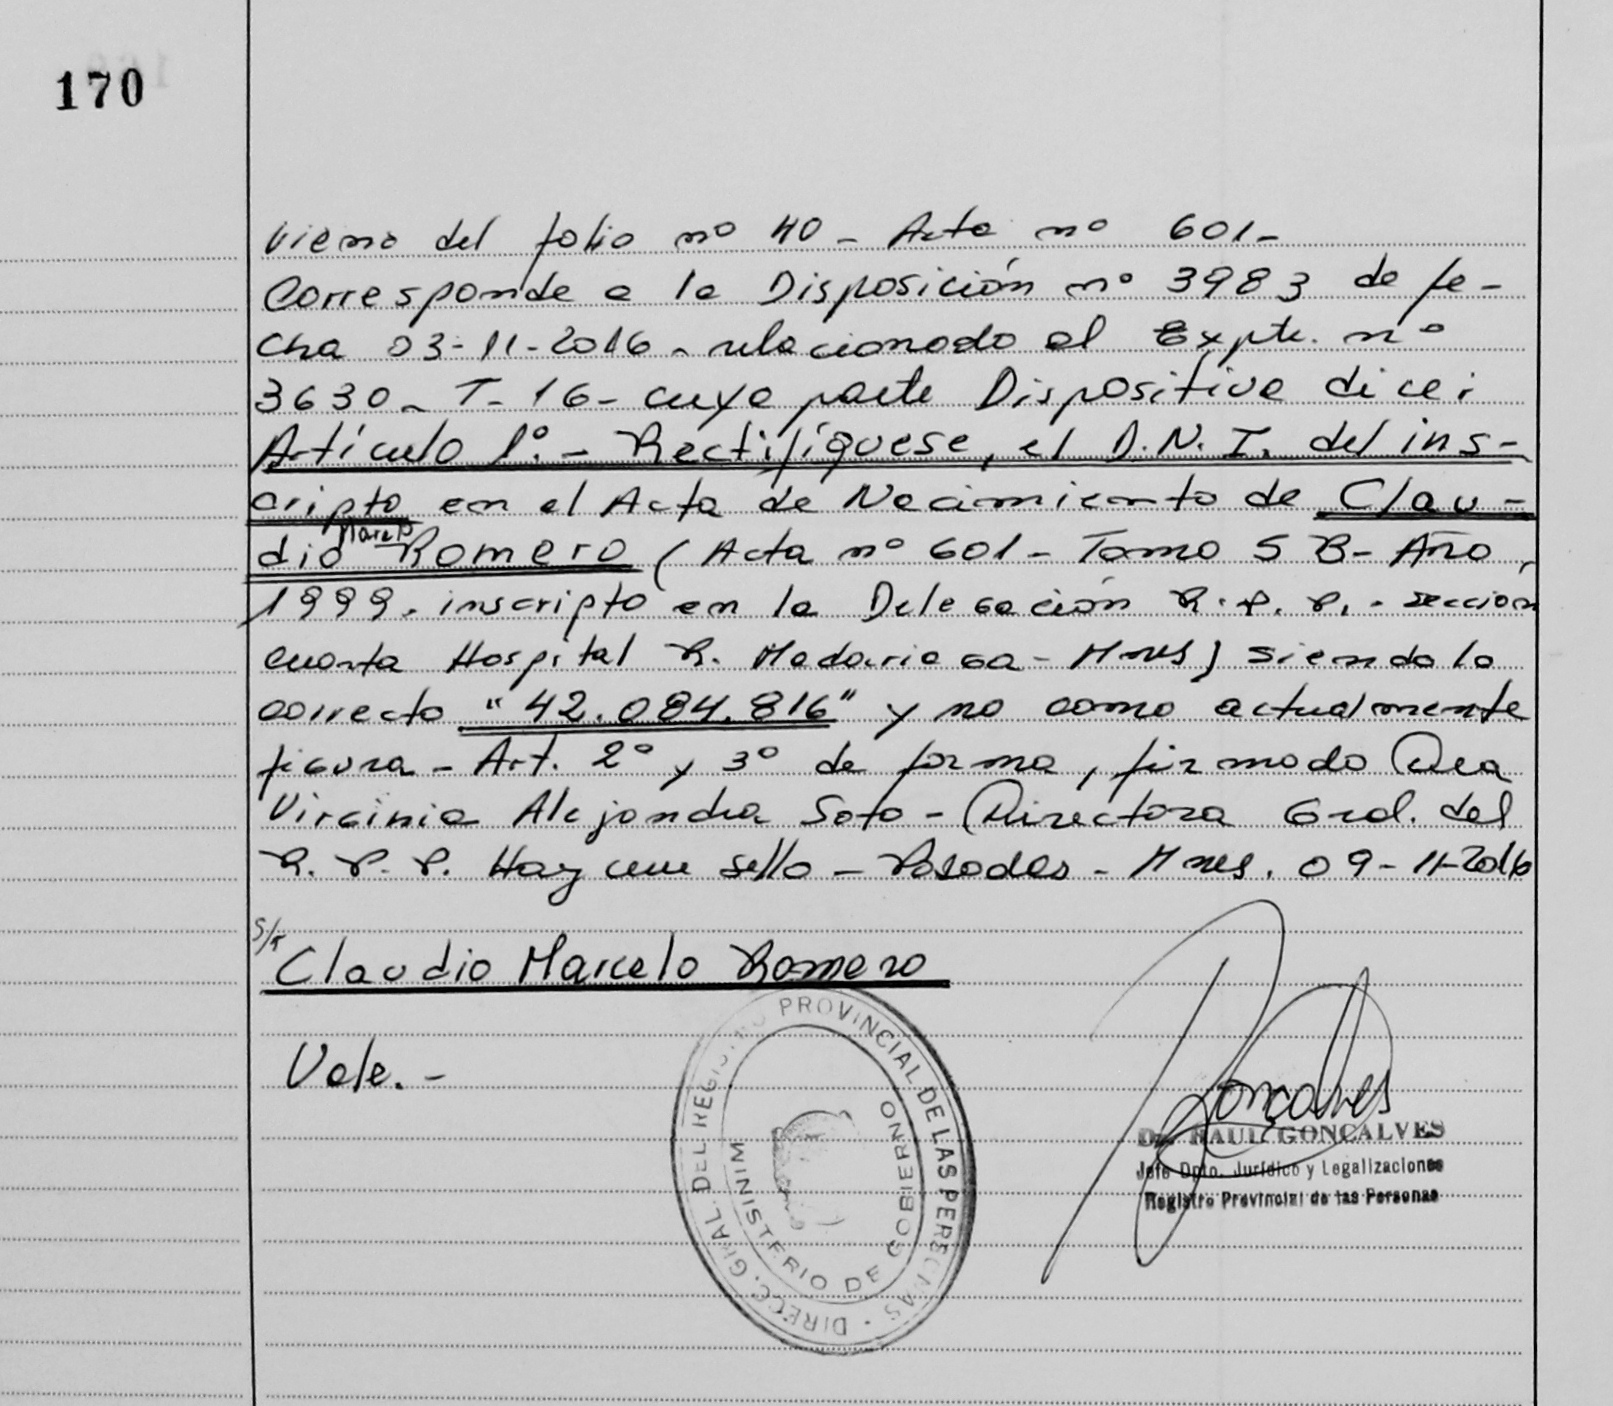 170
Viene del folio nº 40 - Acta nº 601 -
Corresponde a la Disposición nº 3983 de fe-
cha 03-11-2016 - relacionado al Expte. nº
3630 - T - 16 - cuya parte Dispositiva dice:
Artículo 1º. - Rectifíquese, el D.N.I. del ins-
cripto en el Acta de Nacimiento de Clau-
dio Marcelo Romero (Acta nº 601 - Tomo 5 B - Año
1999. inscripto en la Delegación R.P.P. - sección
cuarta Hospital R. Madariaga - Mnes) siendo lo
correcto "42.084.816" y no como actualmente
figura - Art. 2º y 3º de forma, firmado Dra
Virginia Alejandra Soto - Directora Gral. del
R.P.P. Hay un sello - Posadas - Mnes. 09-11-2016
S/R
Claudio Marcelo Romero
Vale. -
DIRECC. GRAL. DEL REGISTRO PROVINCIAL DE LAS PERSONAS
MINISTERIO DE GOBIERNO
Goncalves
Dr. RAUL GONCALVES
Jefe Dpto. Jurídico y Legalizaciones
Registro Provincial de las Personas